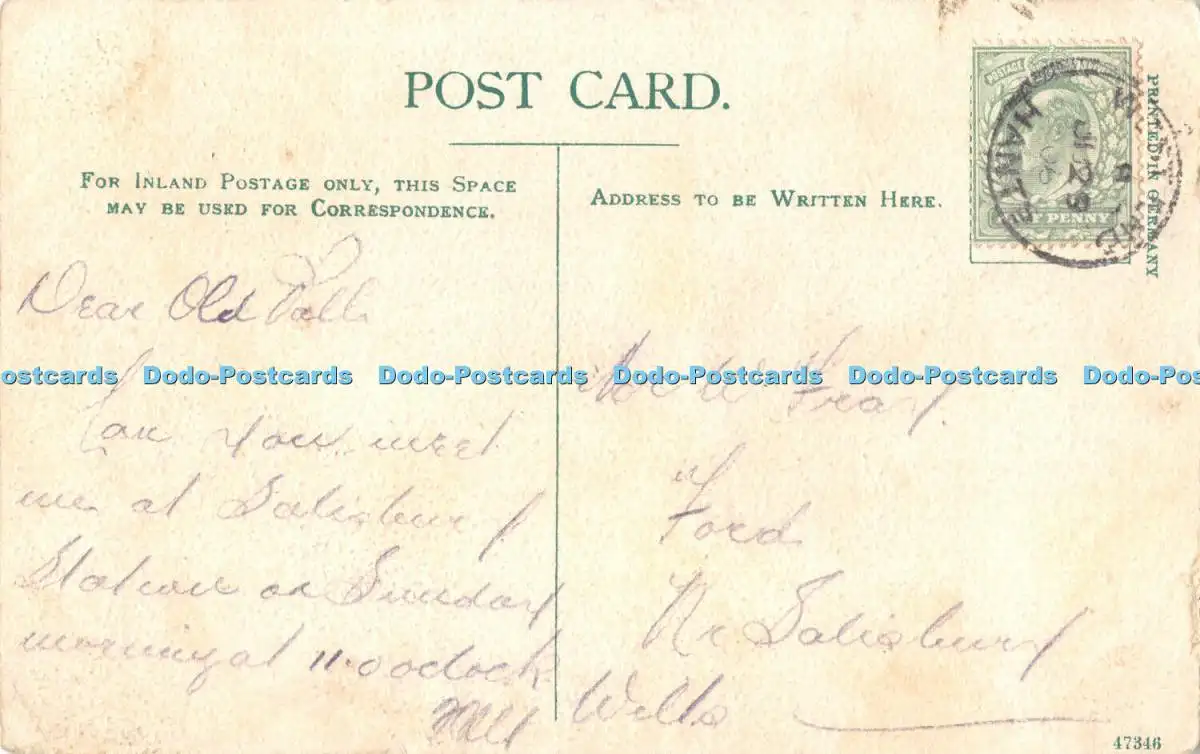 POST CARD.
FOR INLAND POSTAGE ONLY, THIS SPACE
MAY BE USED FOR CORRESPONDENCE.
ADDRESS TO BE WRITTEN HERE.
POSTAGE
PENNY
HANTS
JU 29
PRINTED IN GERMANY
Dear Old
Can you meet
me at Salisbury
Station on Sunday
morning at 11.0 oclock
Ford
Nr Salisbury
Wilts
ostcards Dodo-Postcards Dodo-Postcards Dodo-Postcards Dodo-Postcards Dodo-Pos
47346